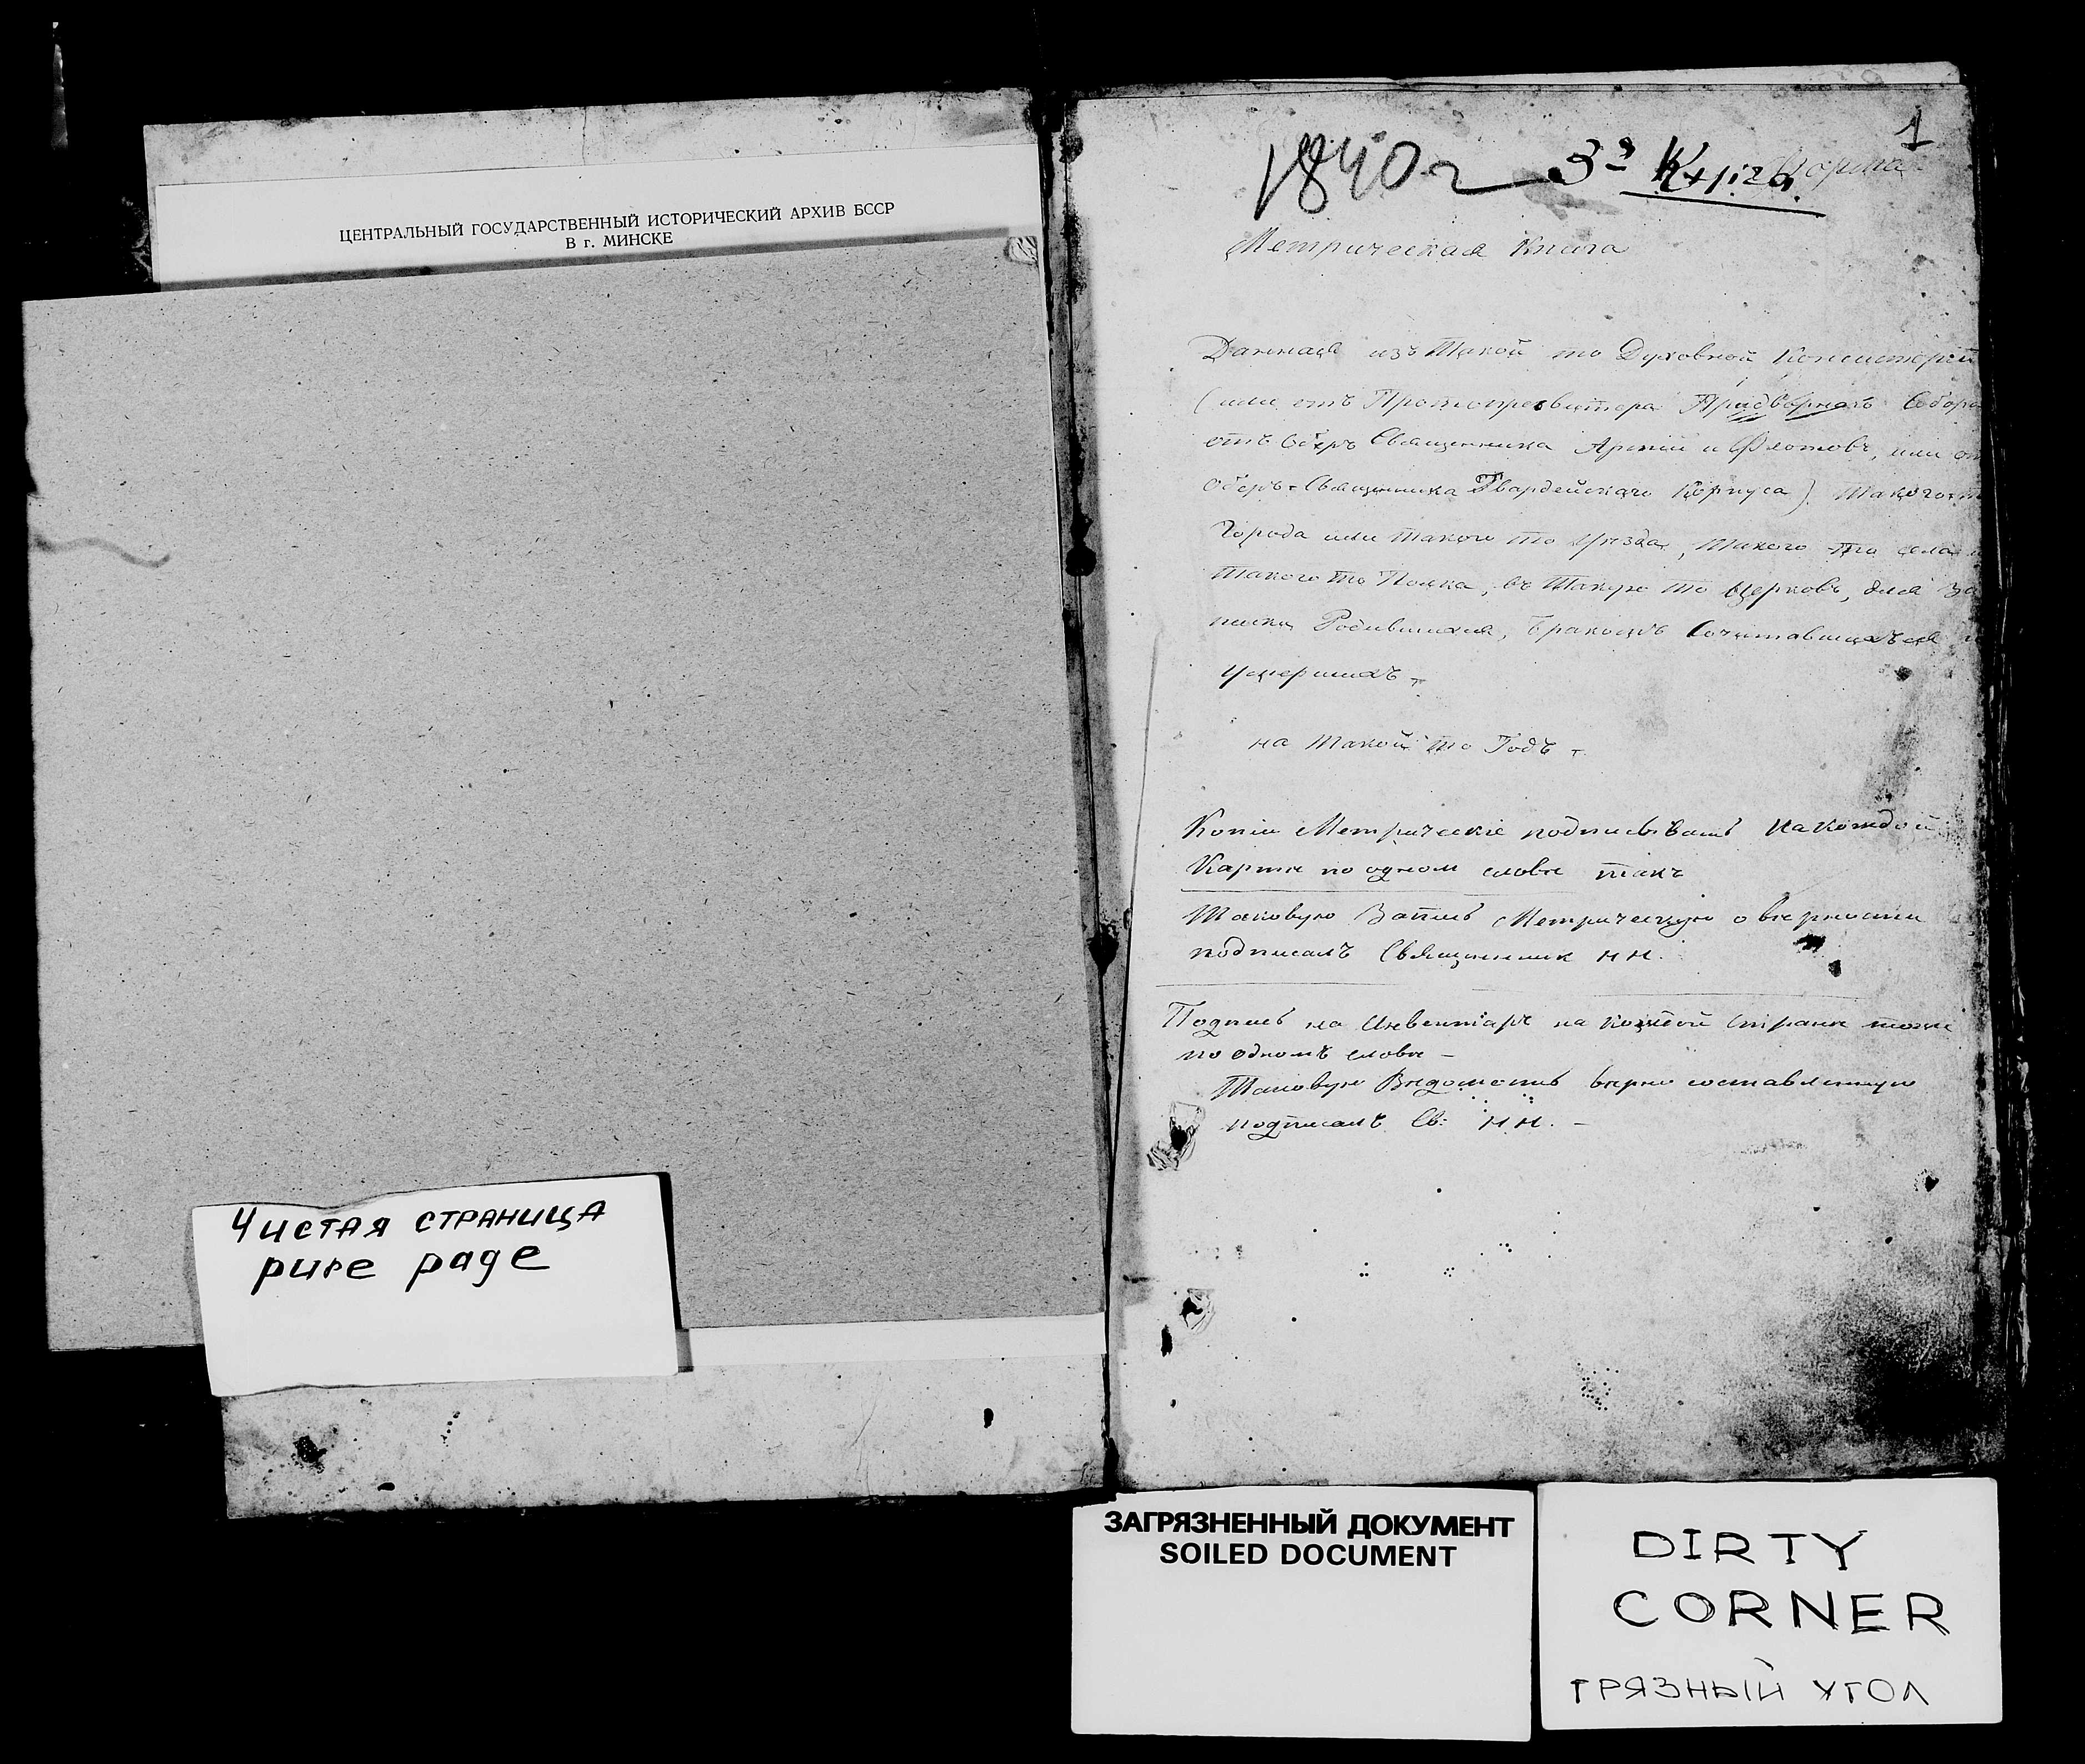 ЦЕНТРАЛЬНЫЙ ГОСУДАРСТВЕННЫЙ ИСТОРИЧЕСКИЙ АРХИВ БССР
В г. МИНСКЕ
Чистая страница
pure page
1
1840 г 3я Книга Форма
Метрическая Книга
Данная изъ Такой то Духовной Консисторіи
(или отъ Протопресвитера Придворнаго Собора
отъ Обер Священника Арміи и Флотовъ, или от
Оберъ-Священника Гвардейскаго Корпуса) Такого т
Города или такого то Уезда, такого то села и
такого то Полка, въ Такую то Церковь, для за
писки Родившихся, Бракомъ Сочетавшихъся и
умершихъ
на такой то Годъ
Копіи Метрическіе подписывать на каждой
Карте по одном слове такъ
Таковую Запись Метрическую о верности
подписалъ Священник НН.
Подпись на Инвентаре на каждой Стране тоже
по одномъ слове –
Таковую Ведомость верно составленную
подписалъ Св: НН. –
ЗАГРЯЗНЕННЫЙ ДОКУМЕНТ
SOILED DOCUMENT
DIRTY
CORNER
ГРЯЗНЫЙ УГОЛ